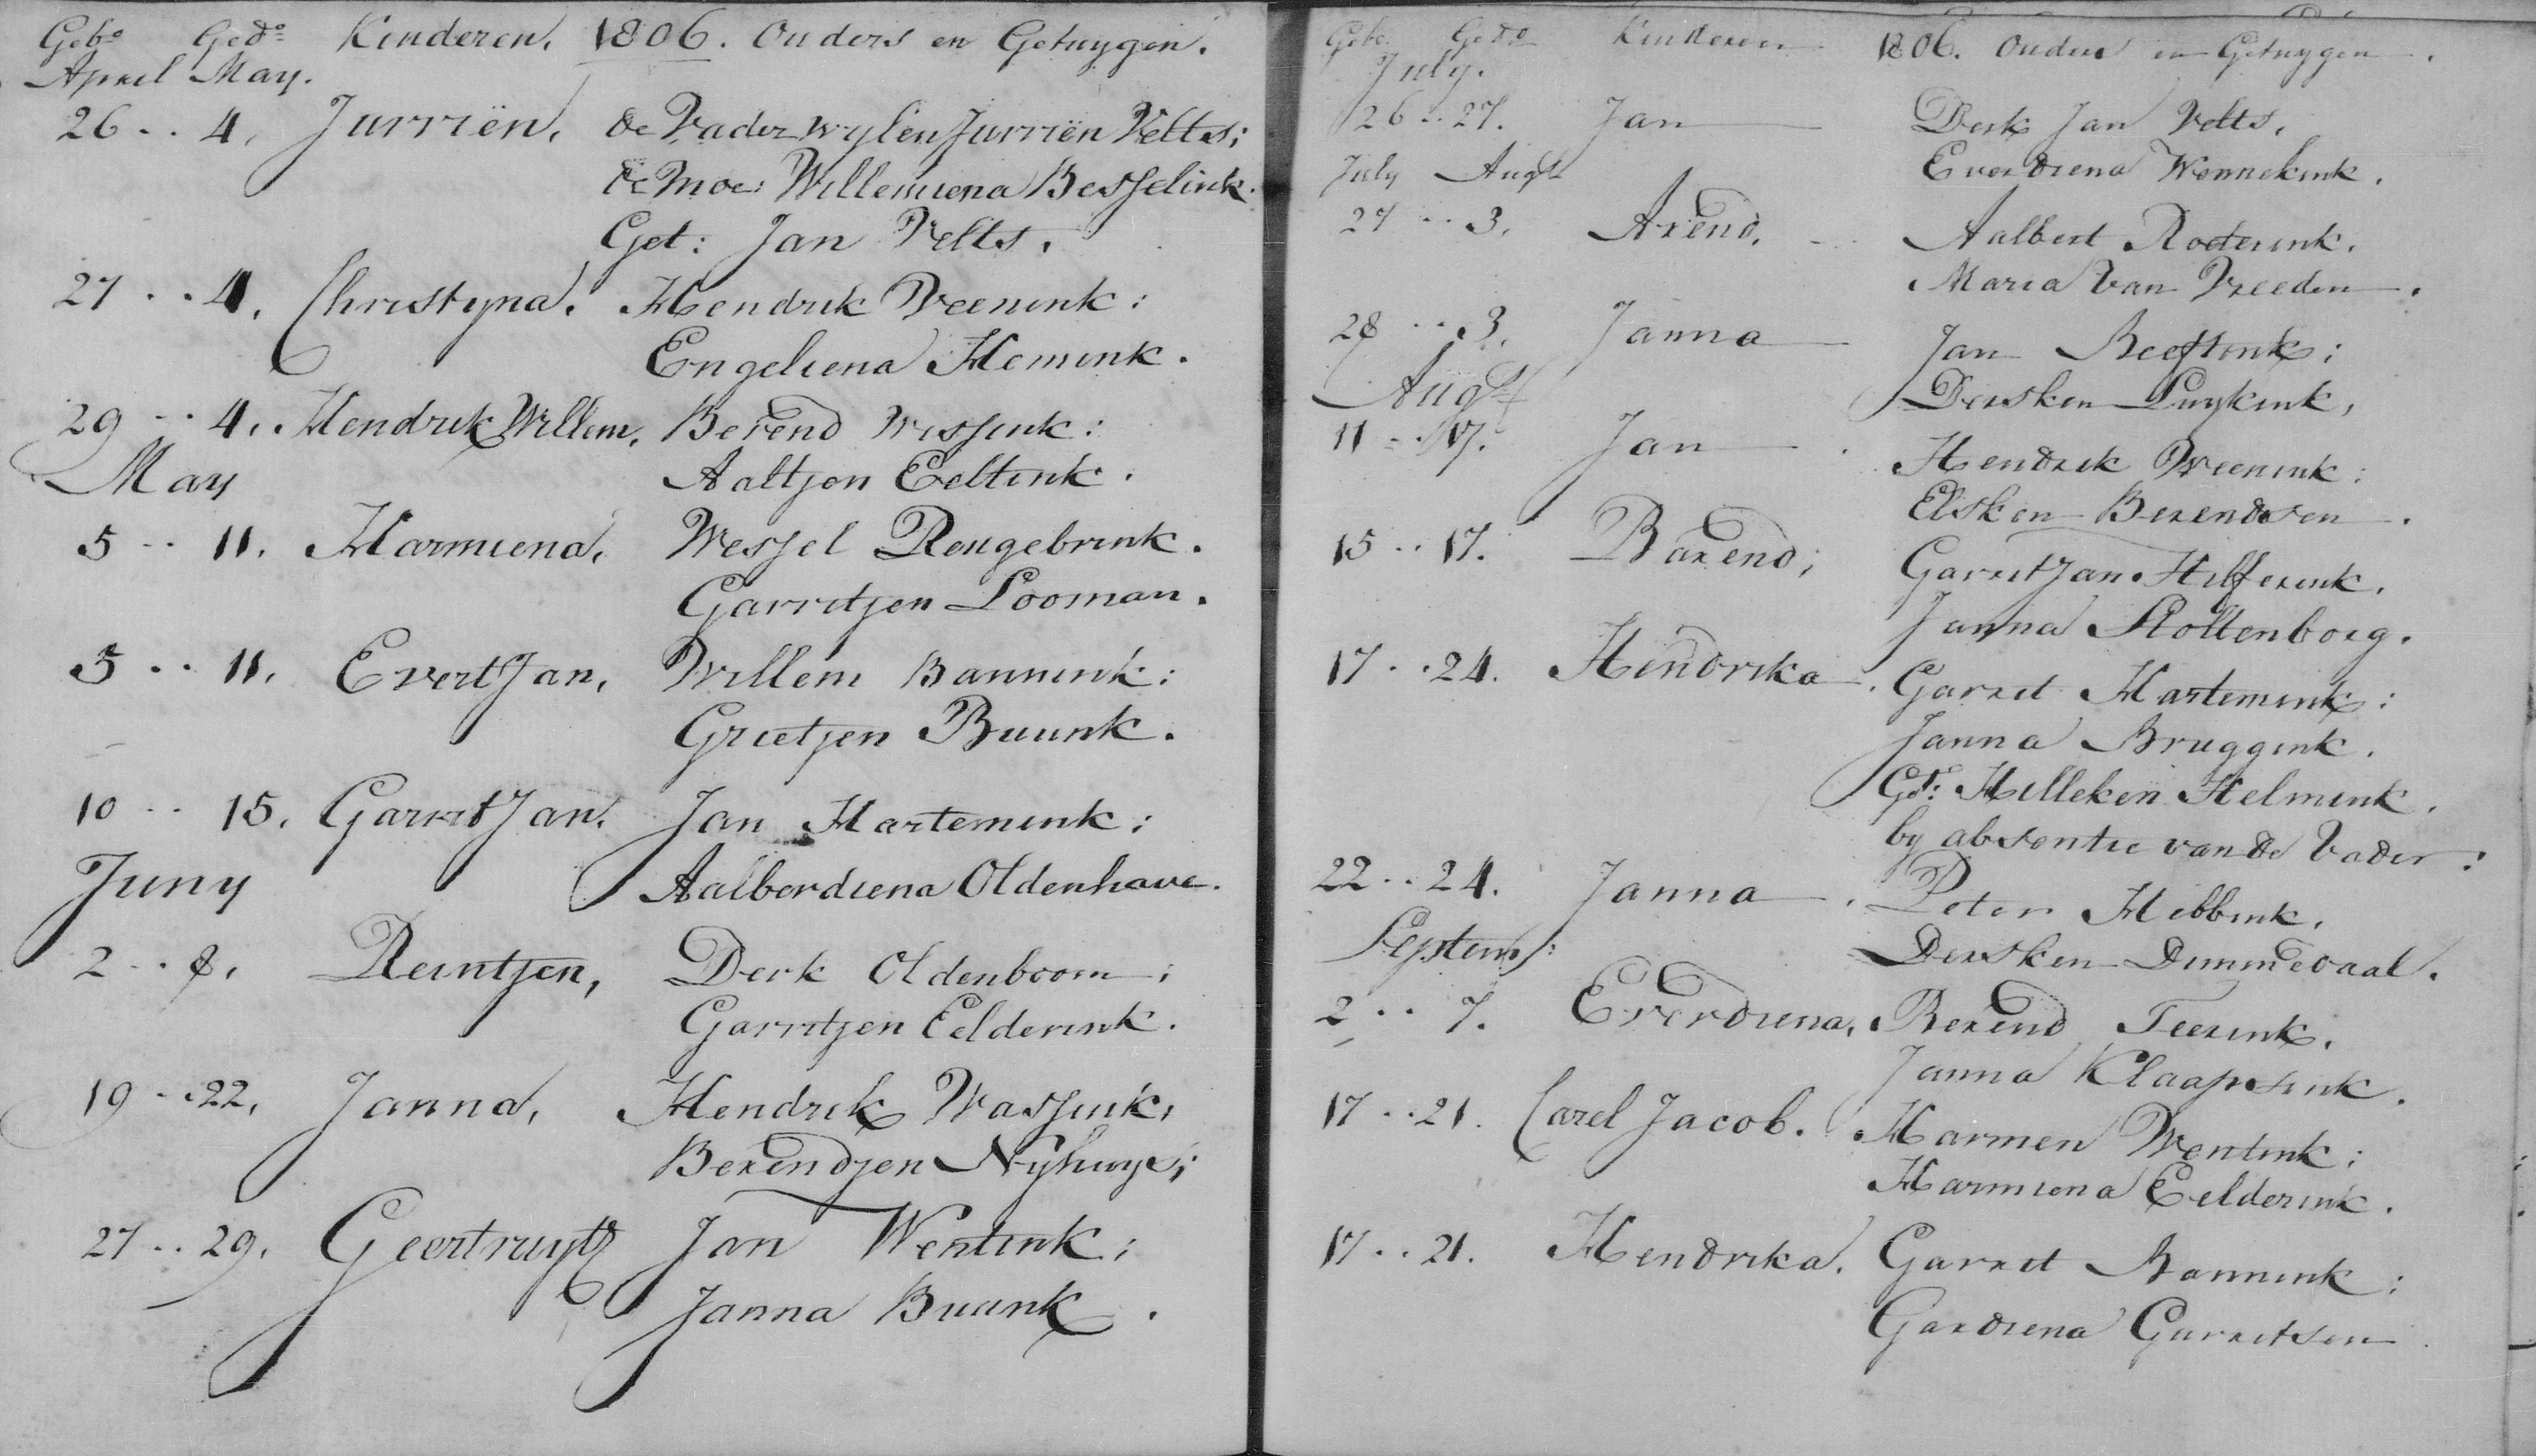 Gebo Gedo Kinderen. 1806. Ouders en Getuygen.
April May.
26 .. 4. Jurriën. de Vader wylen Jurriën Velts;
de Moe: Willemiena Besselink.
Get: Jan Velts.
27 .. 4. Christyna. Hendrik Veenink:
Engeliena Hemink.
29 .. 4. Hendrik Willem. Berend Wissink:
May Aaltjen Eeltink.
5 .. 11. Harmiena, Wessel Rengebrink.
Garritjen Looman.
5 .. 11. Evert Jan, Willem Bannink:
Grietjen Buunk.
10 .. 15. Garrit Jan. Jan Hartemink:
Juny Aalberdiena Oldenhave.
2 .. 8. Reintjen, Derk Oldenboom;
Garritjen Eelderink.
19 .. 22. Janna, Hendrik Wassink,
Berendjen Nyhuys;
27 .. 29. Geertruyt Jan Wentink;
Janna Buunk.
Gebo. Gedo Kinderen 1806. Ouders en Getuygen.
July.
26 .. 27. Jan Derk Jan Velts,
July Augt Everdiena Wennekink.
27 .. 3. Arend. Aalbert Roeterink.
Maria van Vreeden.
28 .. 3. Janna Jan Reeftink;
Augt Dersken Luykink,
11 .. 17. Jan Hendrik Weenink:
Elsken Berendsen.
15 .. 17. Barend; Garrit Jan Hilferink.
Janna Stoltenborg.
17 .. 24. Hendrika. Garrit Hartemink:
Janna Bruggink.
Get: Hilleken Helmink.
by absentie van de Vader:
22 .. 24. Janna. Peter Hebbink.
Septemb: Dersken Dimmedaal.
2 .. 7. Everdiena, Berend Teerink.
Janna Klaapsink.
17 .. 21. Carel Jacob. Harmen Wentink;
Harmiena Eelderink.
17 .. 21. Hendrika. Garrit Bannink;
Gardiena Garritsen